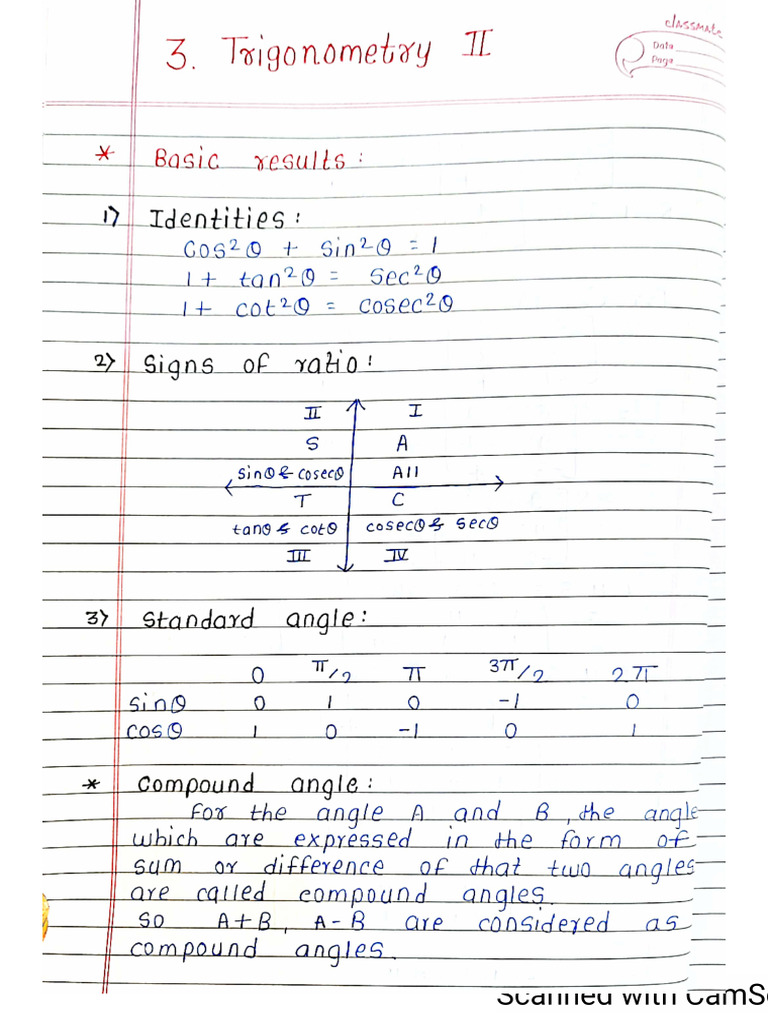 classmate
Date
Page
3. Trigonometry II
* Basic results:
1) Identities:
cos²θ + sin²θ = 1
1 + tan²θ = sec²θ
1 + cot²θ = cosec²θ
2) Signs of ratio:
II I
S A
sinθ & cosecθ All
T C
tanθ & cotθ cosecθ & secθ
III IV
3) Standard angle:
0 π/2 π 3π/2 2π
sinθ 0 1 0 -1 0
cosθ 1 0 -1 0 1
* Compound angle:
For the angle A and B, the angle
which are expressed in the form of
sum or difference of that two angles
are called compound angles.
So A+B, A-B are considered as
compound angles.
Scanned with CamS